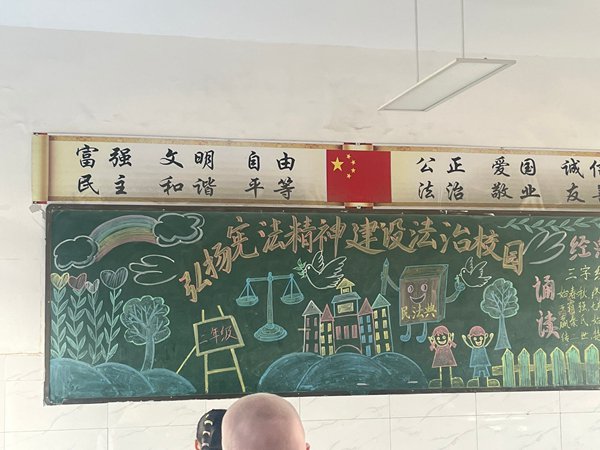 富强 文明 自由 公正 爱国 诚信
民主 和谐 平等 法治 敬业 友善
弘扬宪法精神 建设法治校园
二年级
民法典
经典
诵读
三字经